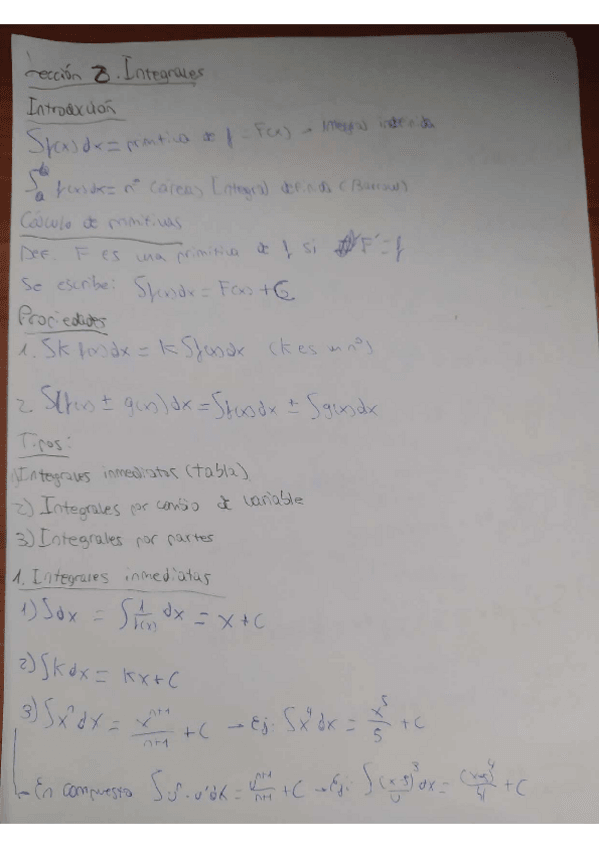 Sección 8. Integrales
Introducción
∫f(x)dx = primitiva de f - F(x) → Integral indefinida
∫ₐᵇ f(x)dx = nº (área) Integral definida (Barrow)
Cálculo de primitivas
Def. F es una primitiva de f si F' = f
Se escribe: ∫f(x)dx = F(x) + C
Propiedades
1. ∫k f(x)dx = k ∫f(x)dx (k es un nº)
2. ∫(f(x) ± g(x))dx = ∫f(x)dx ± ∫g(x)dx
Tipos:
1) Integrales inmediatas (tabla)
2) Integrales por cambio de variable
3) Integrales por partes
1. Integrales inmediatas
1) ∫dx = ∫ 1/f(x) dx = x + C
2) ∫k dx = kx + C
3) ∫xⁿdx = xⁿ⁺¹/n+1 + C → Ej: ∫x⁴dx = x⁵/5 + C
→ En compuesta ∫uⁿ · u'dx = uⁿ⁺¹/n+1 + C → Ej: ∫(x-5)³dx = /4 + C